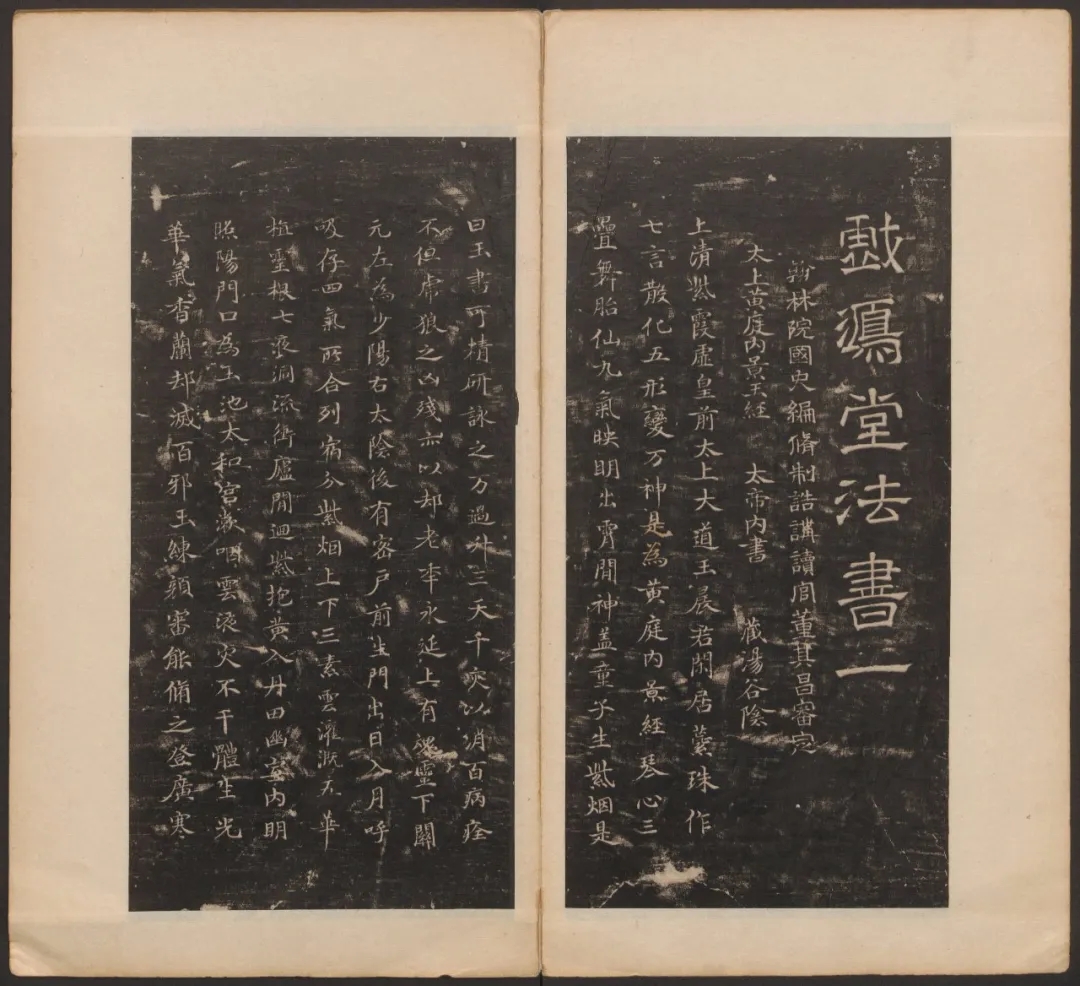 戲鴻堂法書一
翰林院國史編脩制誥講讀官董其昌審定
太上黃庭內景玉經 太帝內書 藏湯谷陰
上清紫霞虛皇前太上大道玉晨君閑居蘂珠作
七言散化五形變万神是為黃庭內景經琴心三
疊舞胎仙九氣映明出霄間神盖童子生紫烟是
曰玉書可精研詠之万過升三天千灾以消百病痊
不但虎狼之凶殘亦以却老年永延上有魂靈下關
元左為少陽右太陰後有密戶前生門出日入月呼
吸存四氣所合列宿分紫烟上下三素雲灌溉五華
植靈根七液洞流衝廬間迴紫抱黃入丹田幽室內明
照陽門口為玉池太和宮漱咽靈液灾不干體生光
華氣香蘭却滅百邪玉練顏審能脩之登廣寒